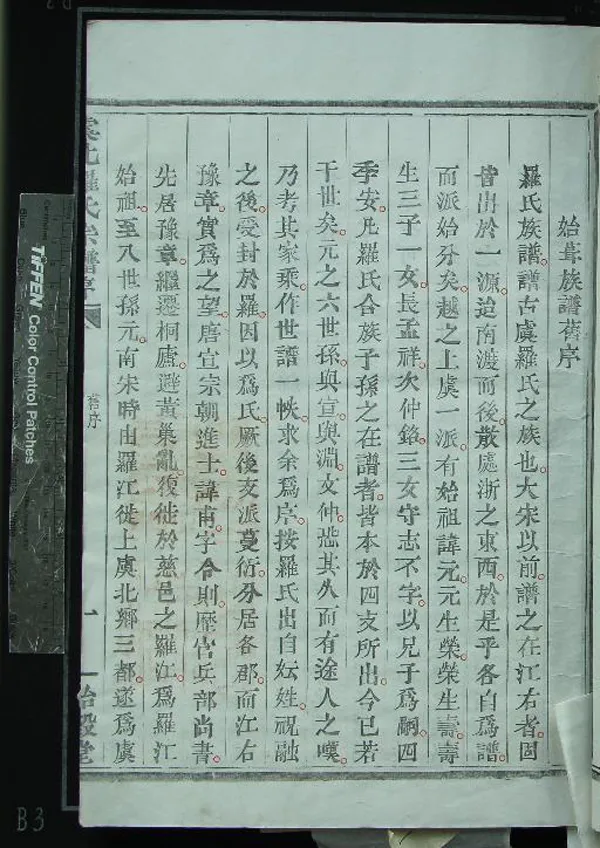 始葺族譜舊序
羅氏族譜譜古虞羅氏之族也大宋以前譜之在江右者固
皆出於一源迨南渡而後散處浙之東西於是乎各自爲譜
而派始分矣越之上虞一派有始祖諱元元生榮榮生壽壽
生三子一女長孟祥次仲銘三女守志不字以兄子爲嗣四
季安凡羅氏合族子孫之在譜者皆本於四支所出今已若
干世矣元之六世孫與宣與淵文仲恐其久而有途人之嘆
乃考其家乘作世譜一帙求余爲序按羅氏出自妘姓祝融
之後受封於羅因以爲氏厥後支派蔓衍分居各郡而江右
豫章實爲之望唐宣宗朝進士諱甫字令則歷官兵部尚書
先居豫章繼遷桐廬避黃巢亂復徙於慈邑之羅江爲羅江
始祖至八世孫元南宋時由羅江徙上虞北鄉三都遂爲虞
虞北羅氏宗譜序
舊序
一
怡穀堂
TIFFEN Color Control Patches
B3